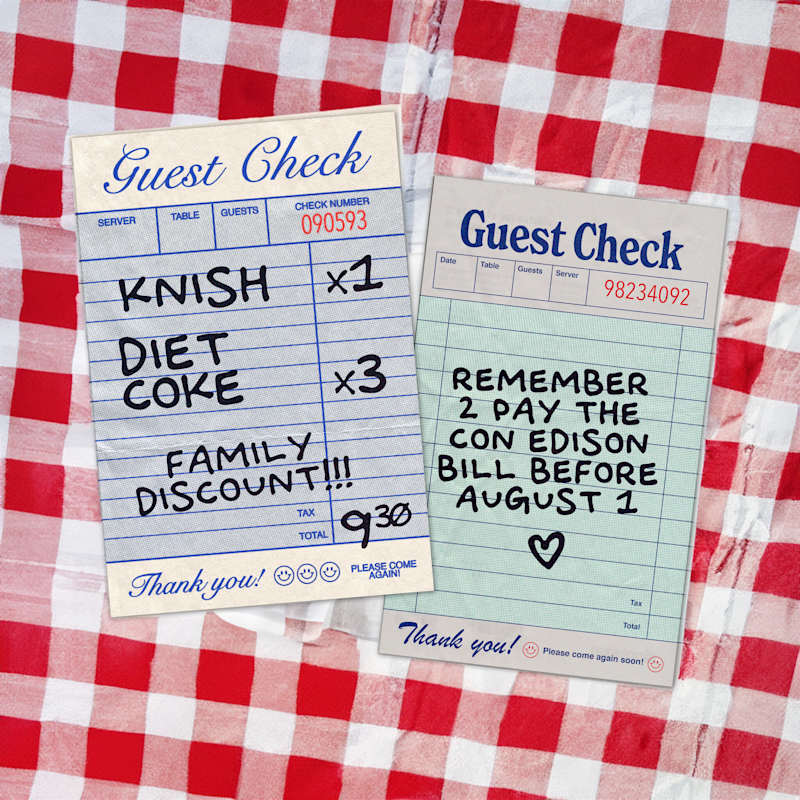 Guest Check
SERVER TABLE GUESTS CHECK NUMBER
090593
KNISH x1
DIET
COKE x3
FAMILY
DISCOUNT!!!
TAX
TOTAL 930
Thank you! PLEASE COME
AGAIN!
Guest Check
Date Table Guests Server 98234092
REMEMBER
2 PAY THE
CON EDISON
BILL BEFORE
AUGUST 1
Tax
Total
Thank you! Please come again soon!